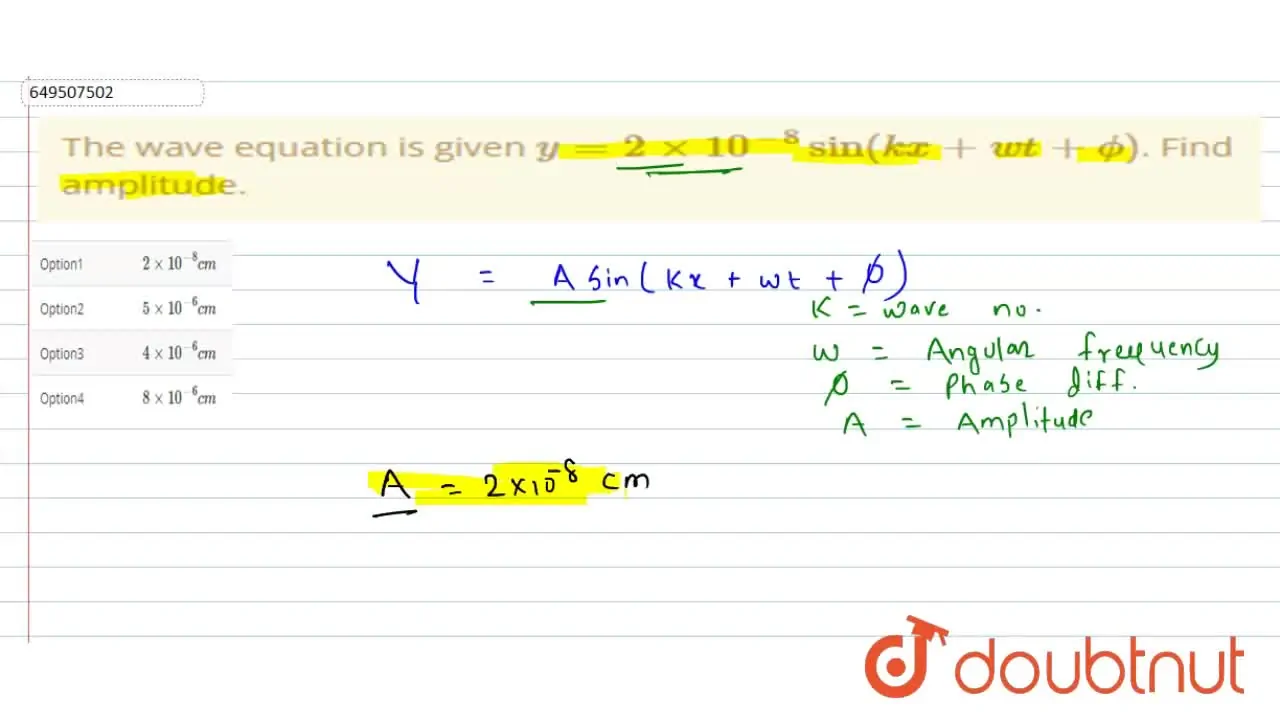 649507502
The wave equation is given y = 2 × 10⁻⁸ sin(kx + wt + ϕ). Find
amplitude.
Option1 2 × 10⁻⁸cm
Option2 5 × 10⁻⁶cm
Option3 4 × 10⁻⁶cm
Option4 8 × 10⁻⁶cm
Y = A Sin(Kx + wt + ϕ)
K = wave no.
w = Angular frequency
ϕ = Phase diff.
A = Amplitude
A = 2×10⁻⁸ cm
doubtnut